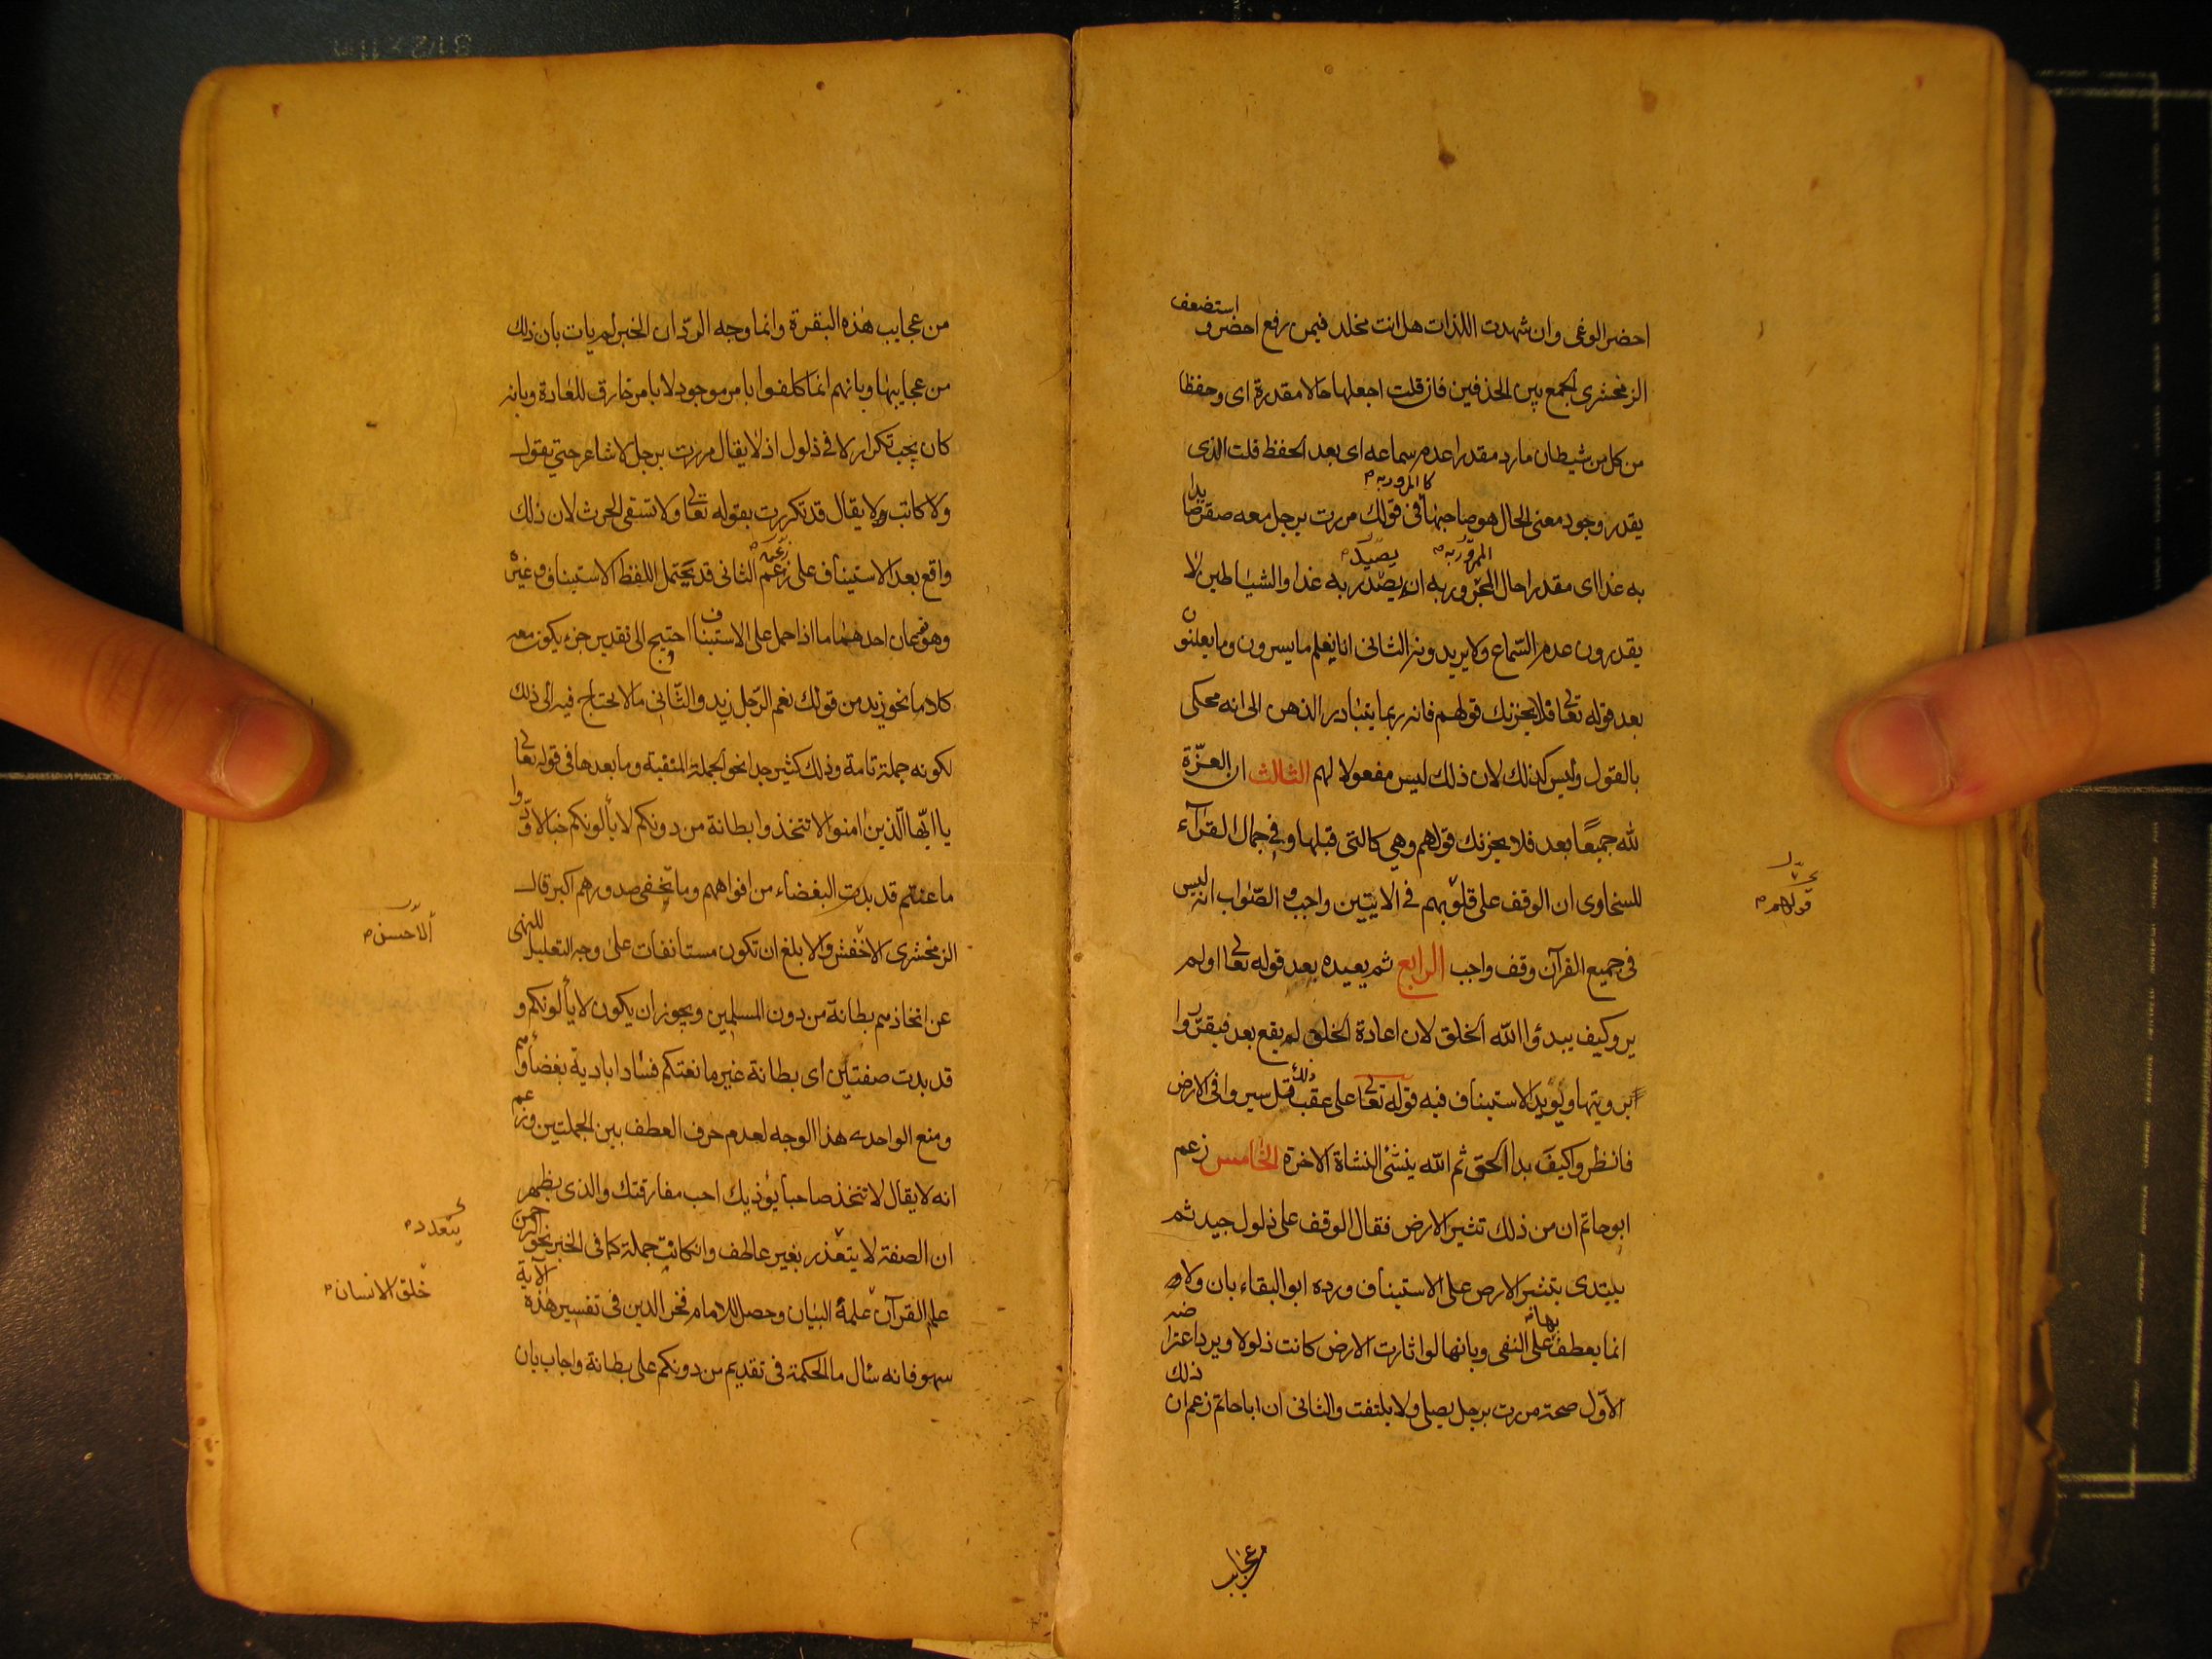 احضر الوغى وان شهدت اللذات هل انت مخلد فيمن رفع احضر و استضعف
الزمخشرى الجمع بين الحذفين فان قلت اجعلها حالا مقدرة اى وحفظا
من كل من شيطان مارد مقدرا عدم سماعه اى بعد الحفظ قلت الذى
يقدر وجود معنى الحال هو صاحبها فى قولك مررت برجل معه صقر صايدا
كالممرور به
به غدا اى مقدرا حال المجرور به ان يصدر به غدا والشياطين لا
الممرور به يصيد
يقدرون عدم السماع ولا يريدونه الثانى انا نعلم ما يسرون وما يعلنون
بعد قوله تعالى فلا يحزنك قولهم فانه ربما يتبادر الذهن الى انه محكى
بالقول وليس كذلك لان ذلك ليس مفعولا لهم الثالث ان العزة
لله جميعا بعد فلا يحزنك قولهم وهي كالتى قبلها وفي جمال القرآء
للسخاوى ان الوقف على قلوبهم فى الايتين واجب و الصواب انه ليس
قولهم
فى جميع القرآن وقف واجب الرابع ثم يعيده بعد قوله تعالى اولم
يروكيف يبدؤا الله الخلق لان اعادة الخلق لم يقع بعد فيقرروا
برويتها ويؤيد الاستيناف فيه قوله تعالى على عقب ذلك قل سيروا فى الارض
فانظروا كيف بدا الحق ثم الله ينشئ النشاة الاخرة الخامس زعم
ابو حاتم ان من ذلك تثير الارض فقال الوقف على ذلول جيد ثم
يبتدى بتثير الارض على الاستيناف ورده ابو البقاء بان ولا
انما يعطف بها على النفى وبانها لو اثارت الارض كانت ذلولا ويرد اعتراضه
الاول صحة مررت برجل يصلى ولا يلتفت والثانى ان ابا حاتم زعم ان ذلك
من عجايب
من عجايب هذه البقرة وانما وجه الرد ان الخبر لم يات بان ذلك
من عجايبها وبانهم انما كلفوا بامر موجود لا بامر خارق للعادة وبانه
كان يجب تكرار لا فى ذلول اذ لا يقال مررت برجل لا شاعر حتي يقول
ولا كاتب ولا يقال قد تكررت بقوله تعالى ولا تسقى الحرث لان ذلك
واقع بعد الاستيناف على زعم الثانى قد يحتمل اللفظ الاستيناف و غيره
زعمه
وهو نوعان احدهما ما اذا حمل على الاستيناف احتيج الى تقدير جزء يكون معه
كلاما نحو زيد من قولك نعم الرجل زيد والثانى ما لا يحتاج فيه الى ذلك
لكونه جملة تامة وذلك كثير جدا نحو الجملة المنفية وما بعدها فى قوله تعالى
يا ايها الذين امنوا لا تتخذوا بطانة من دونكم لا يألونكم خبالا ودوا
ما عنتم قد بدت البغضاء من افواههم وما تخفى صدورهم اكبر قال
الزمخشرى الاخفش والابلغ ان تكون مستانفات على وجه التعليل للنهى
الاحسن
عن اتخاذهم بطانة من دون المسلمين ويجوز ان يكون لا يألونكم و
قد بدت صفتين اى بطانة غير مانعتكم فسادا بادية بغضاؤهم
ومنع الواحدى هذا الوجه لعدم حرف العطف بين الجملتين وزعم
انه لا يقال لا تتخذ صاحبا يؤذيك احب مفارقتك والذى يظهر
ان الصفة لا يتعذر بغير عاطف وان كانت جملة كما فى الخبر نحو الرحمن
يتعدد
علم القرآن علمه البيان وحصل للامام فخر الدين فى تفسير هذه الآية
خلق الانسان
سهو فانه سأل ما الحكمة فى تقديم من دونكم على بطانة واجاب بان